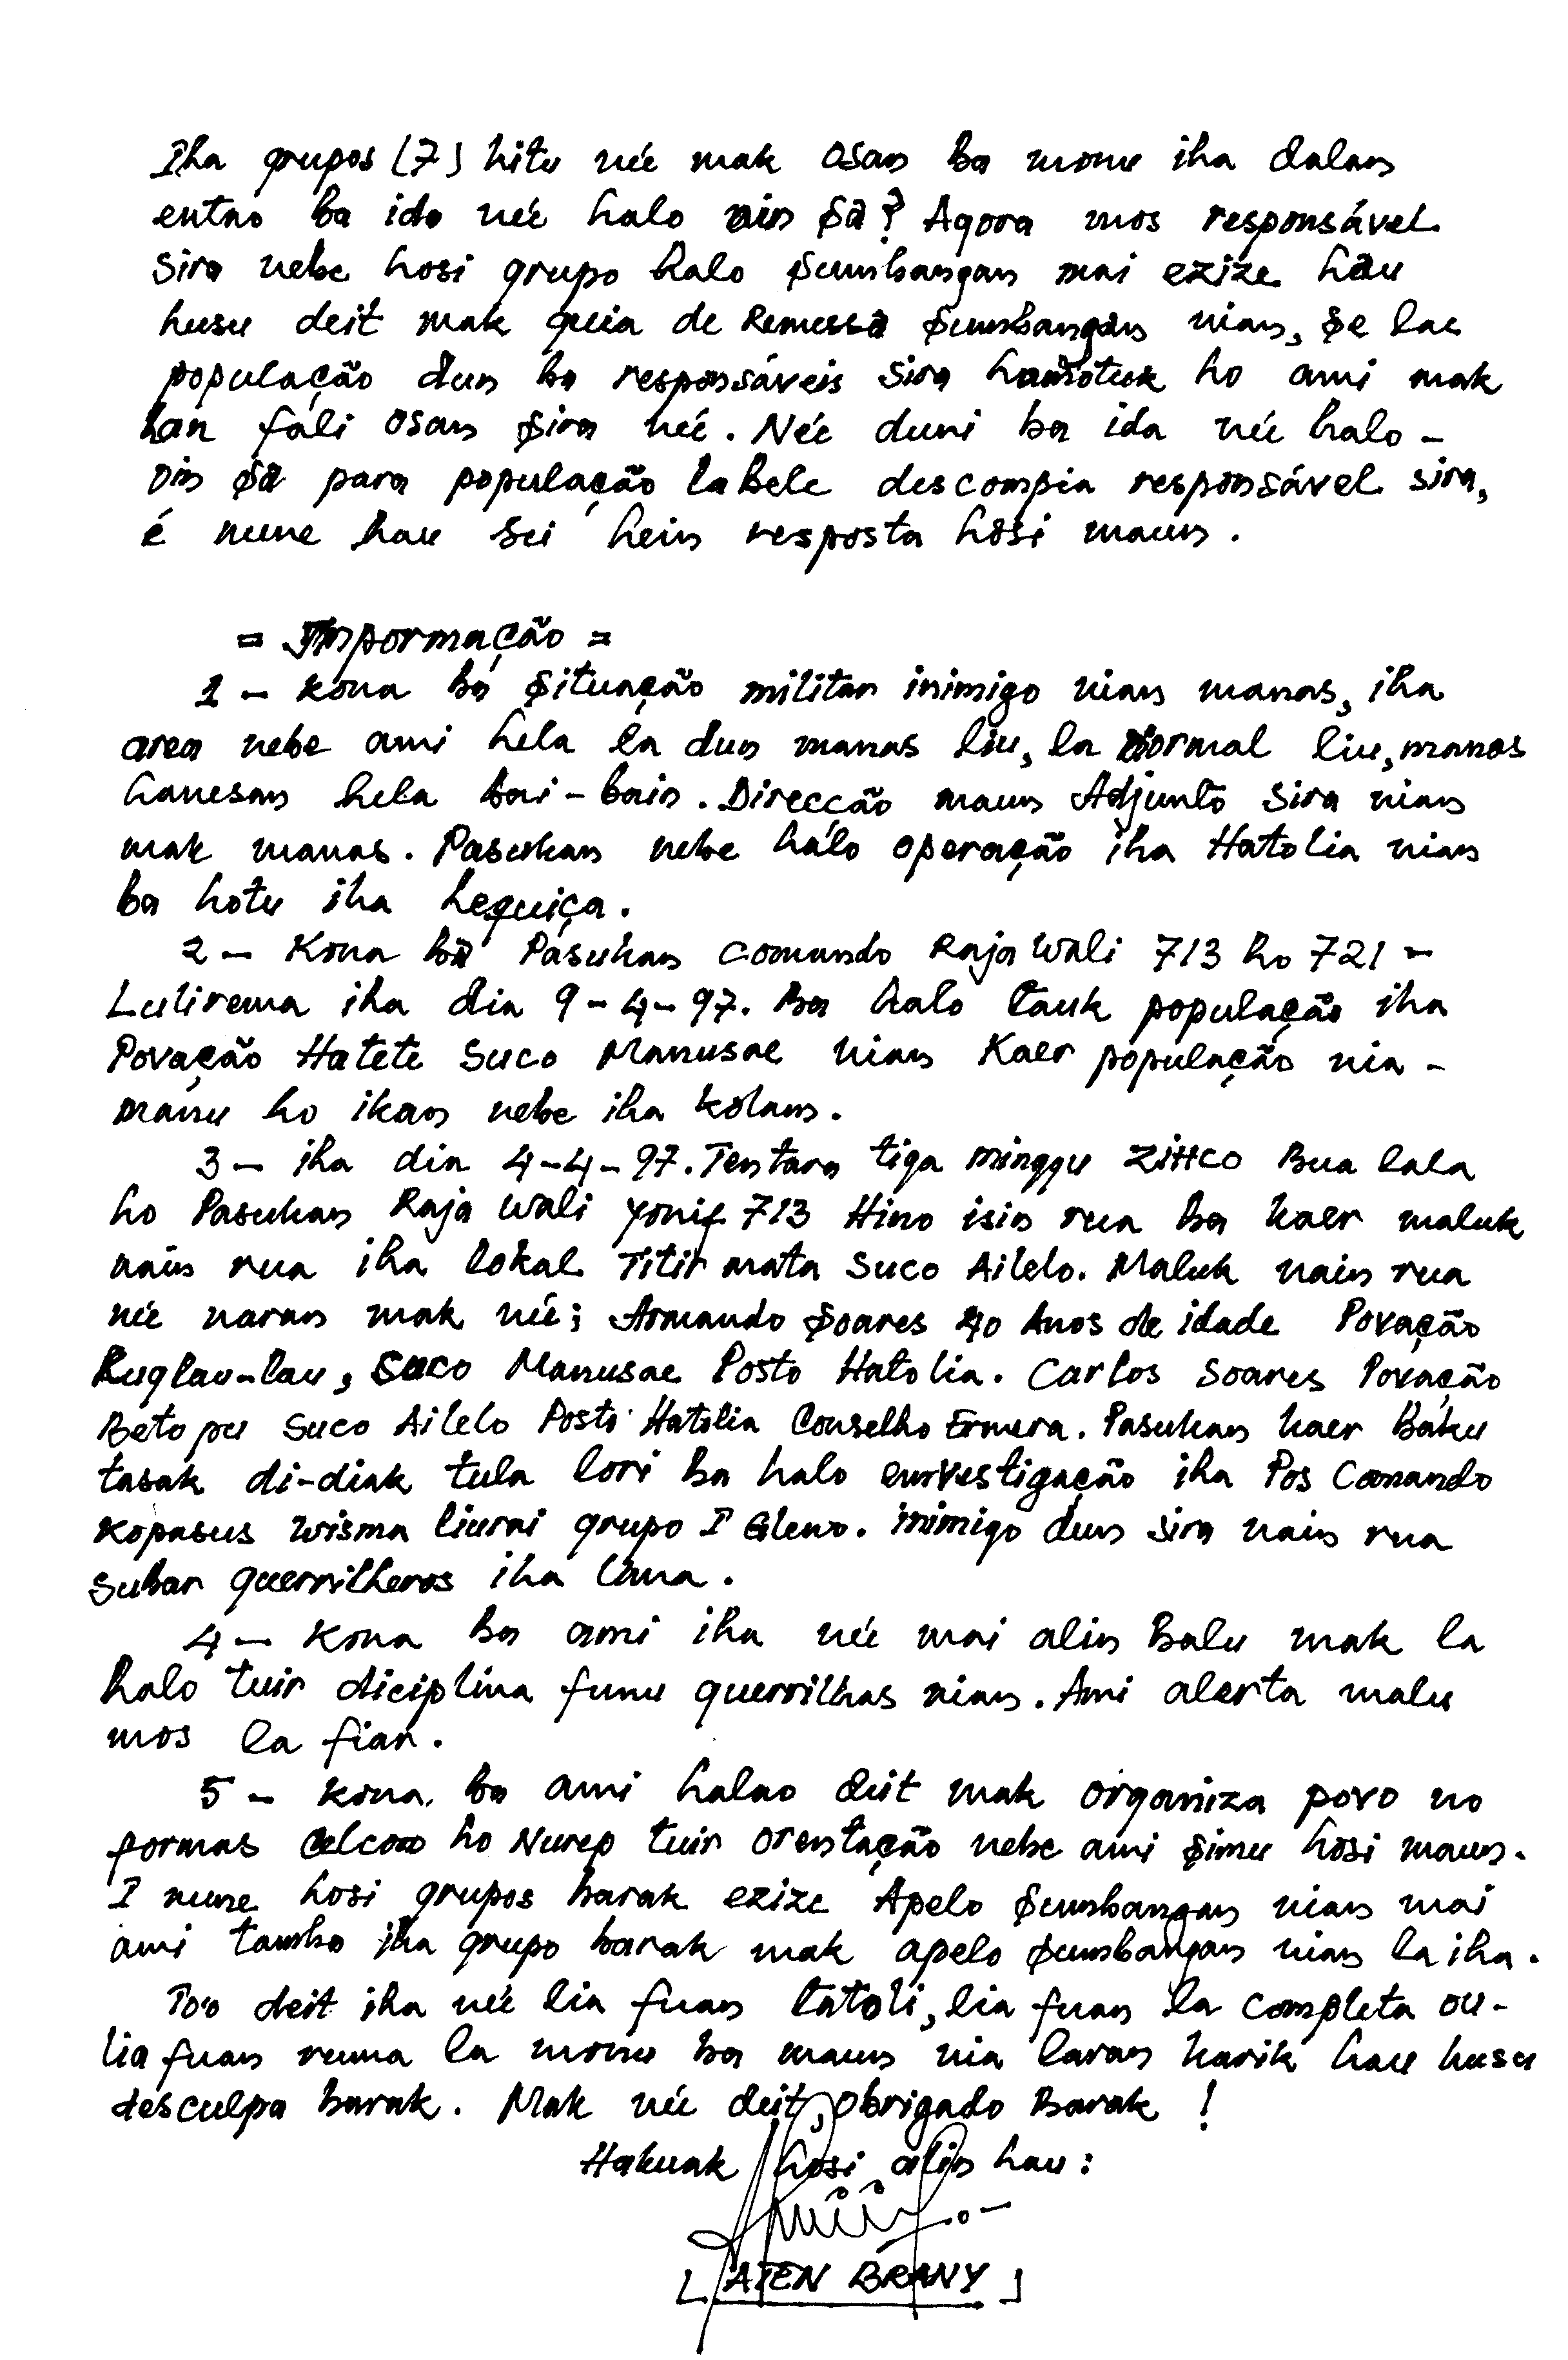 Iha grupos (7) hitu neé mak osan ba monu iha dalan
entao ba ida neé halo nin sá? Agora mos responsável
sira nebe hosi grupo halo sumbangan mai ezize háu
husu deit mak guia de Remessa sumbangan nian, se lae
população dun ba responsáveis sira hamotuk ho ami mak
han fali osan sira neé. Neé duni ba ida neé halo-
oin sá para população labele desconpia responsável sira,
é nune hau sei hein resposta hosi maun.
= Inpormação =
1 - Kona bá situação militar inimigo nian manas, iha
area nebe ami hela la dun manas liu, la normal liu, manas
hanesan hela bai-bain. Direcção maun Adjunto sira nian
mak manas. Pasukan nebe halo operação iha Hatolia nian
ba hotu iha Lequiça.
2 - Kona bá Pasukan comando Raja Wali 713 ho 721 -
Lulirema iha dia 9-4-97. Ba halo tauk população iha
Povação Hatete Suco Manusae nian Kaer população nia -
manu ho ikan nebe iha kolam.
3 - iha dia 4-4-97. Tentara tiga minggu Zittco Bua lala
ho Pasukan Raja Wali Yonif 713 Hino isin rua ba kaer maluk
nain rua iha lokal Titir mata Suco Ailelo. Maluk nain rua
neé naran mak neé; Armando Soares 40 Anos de idade Povação
Ruglau-lau, Suco Manusae Posto Hatolia. Carlos Soares Povação
Beto pu Suco Ailelo Posto Hatolia Conselho Ermera. Pasukan kaer Baku
tasak di-diak tula lori ba halo envestigação iha Pos Comando
Kopasus Wisma liurai grupo I Gleno. inimigo dun sira nain rua
Subar guerrilheros iha Uma.
4 - Kona ba ami iha neé mai alin balu mak la
halo tuir diciplina funu guerrilhas nian. Ami alerta malu
mos la fiar.
5 - Kona ba ami halao deit mak organiza povo no
formas Celcom ho Nurep tuir orentação nebe ami simu hosi maun.
I nune hosi grupos barak ezize Apelo sumbangan nian mai
ami tamba iha grupo barak mak apelo sumbangan nian la iha.
Too deit iha neé lia fuan tatoli, lia fuan la completa ou-
lia fuan ruma la monu ba maun nia laran karik hau husu
desculpa barak. Mak neé deit, obrigado Barak !
Hakuak hosi alin hau:
[ATEN BRANY]